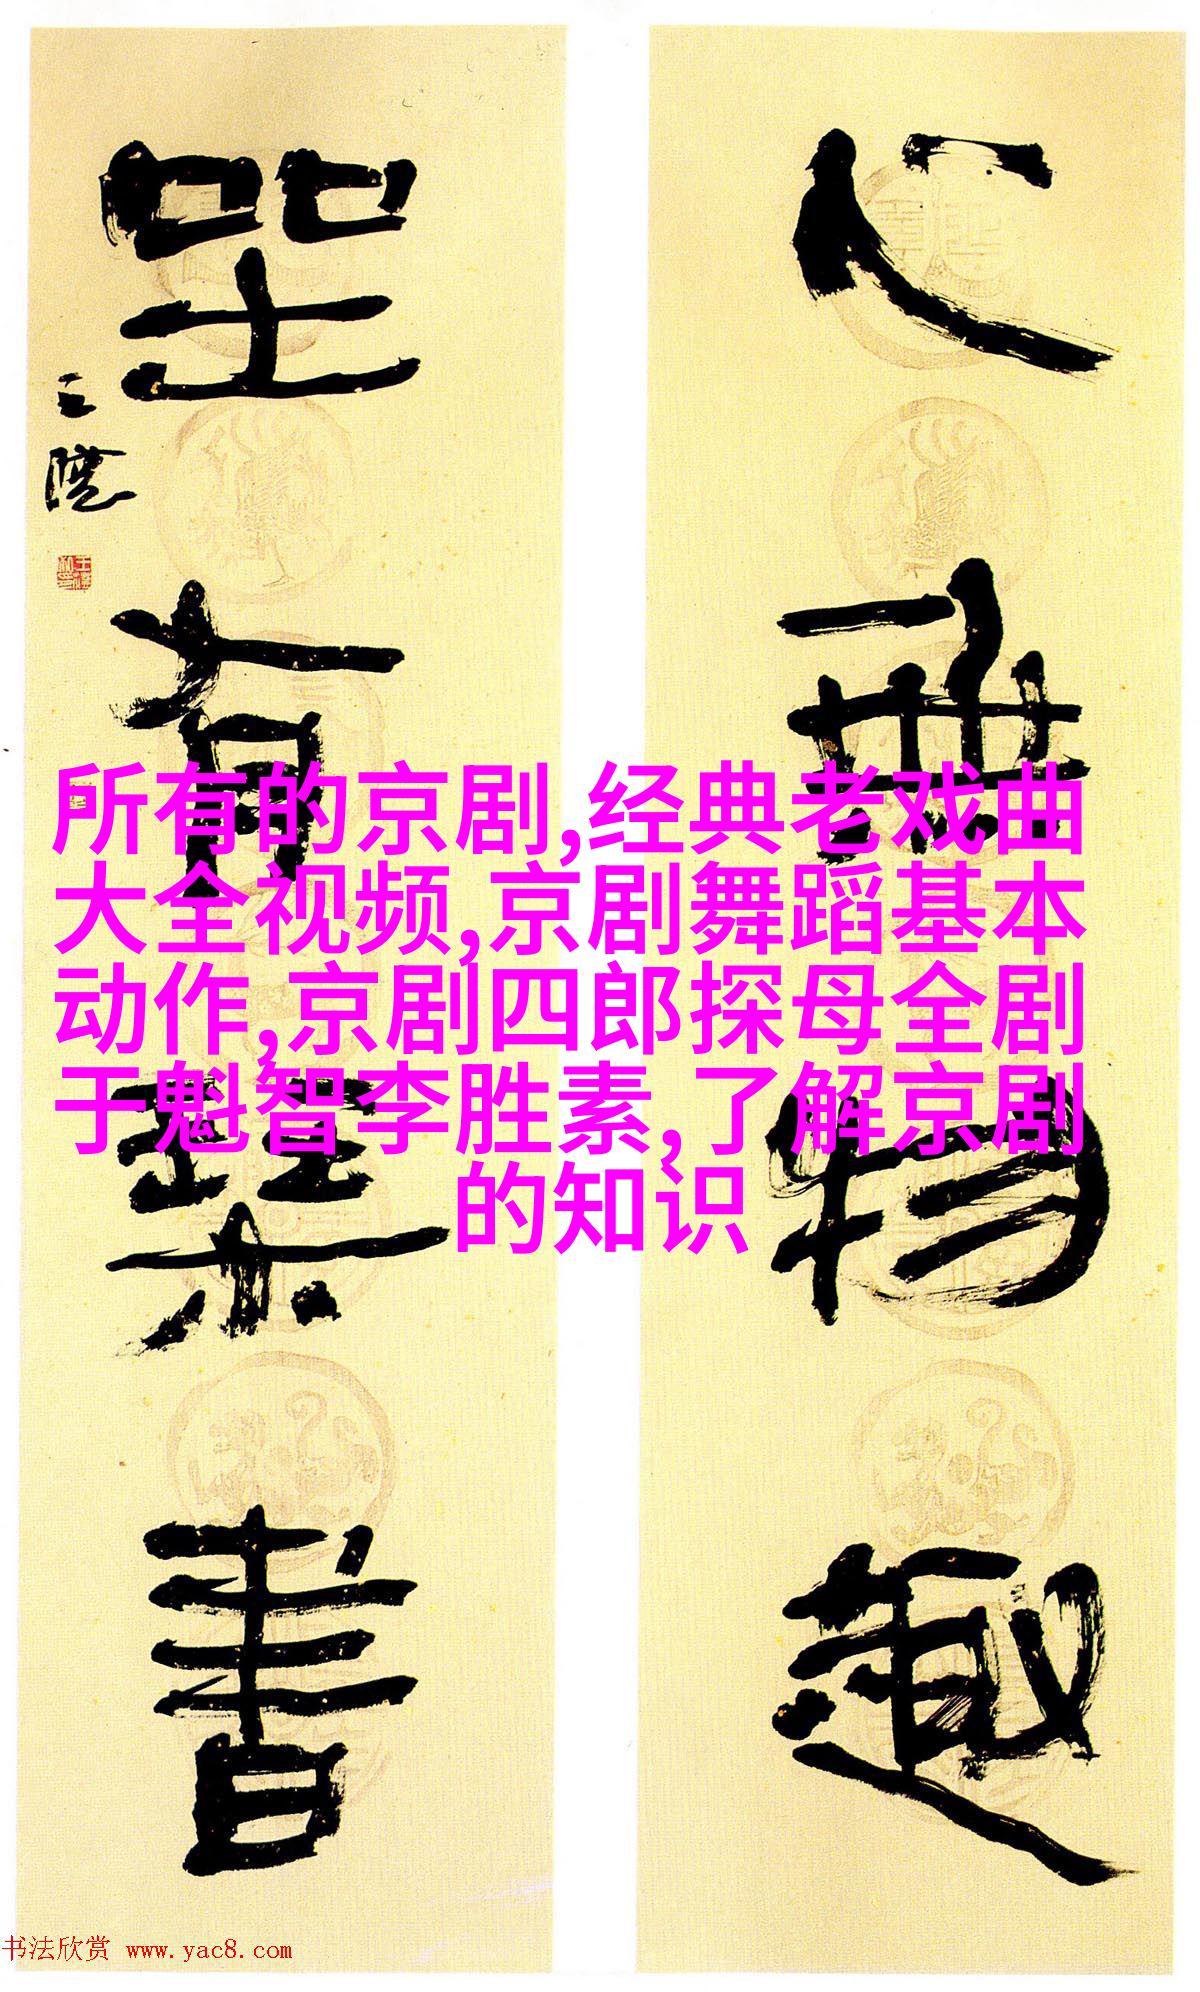 心無物趣
坐有琴書
王鏞
所有的京剧,经典老戏曲
大全视频,京剧舞蹈基本
动作,京剧四郎探母全剧
于魁智李胜素,了解京剧
的知识
书法欣赏 www.yac8.com